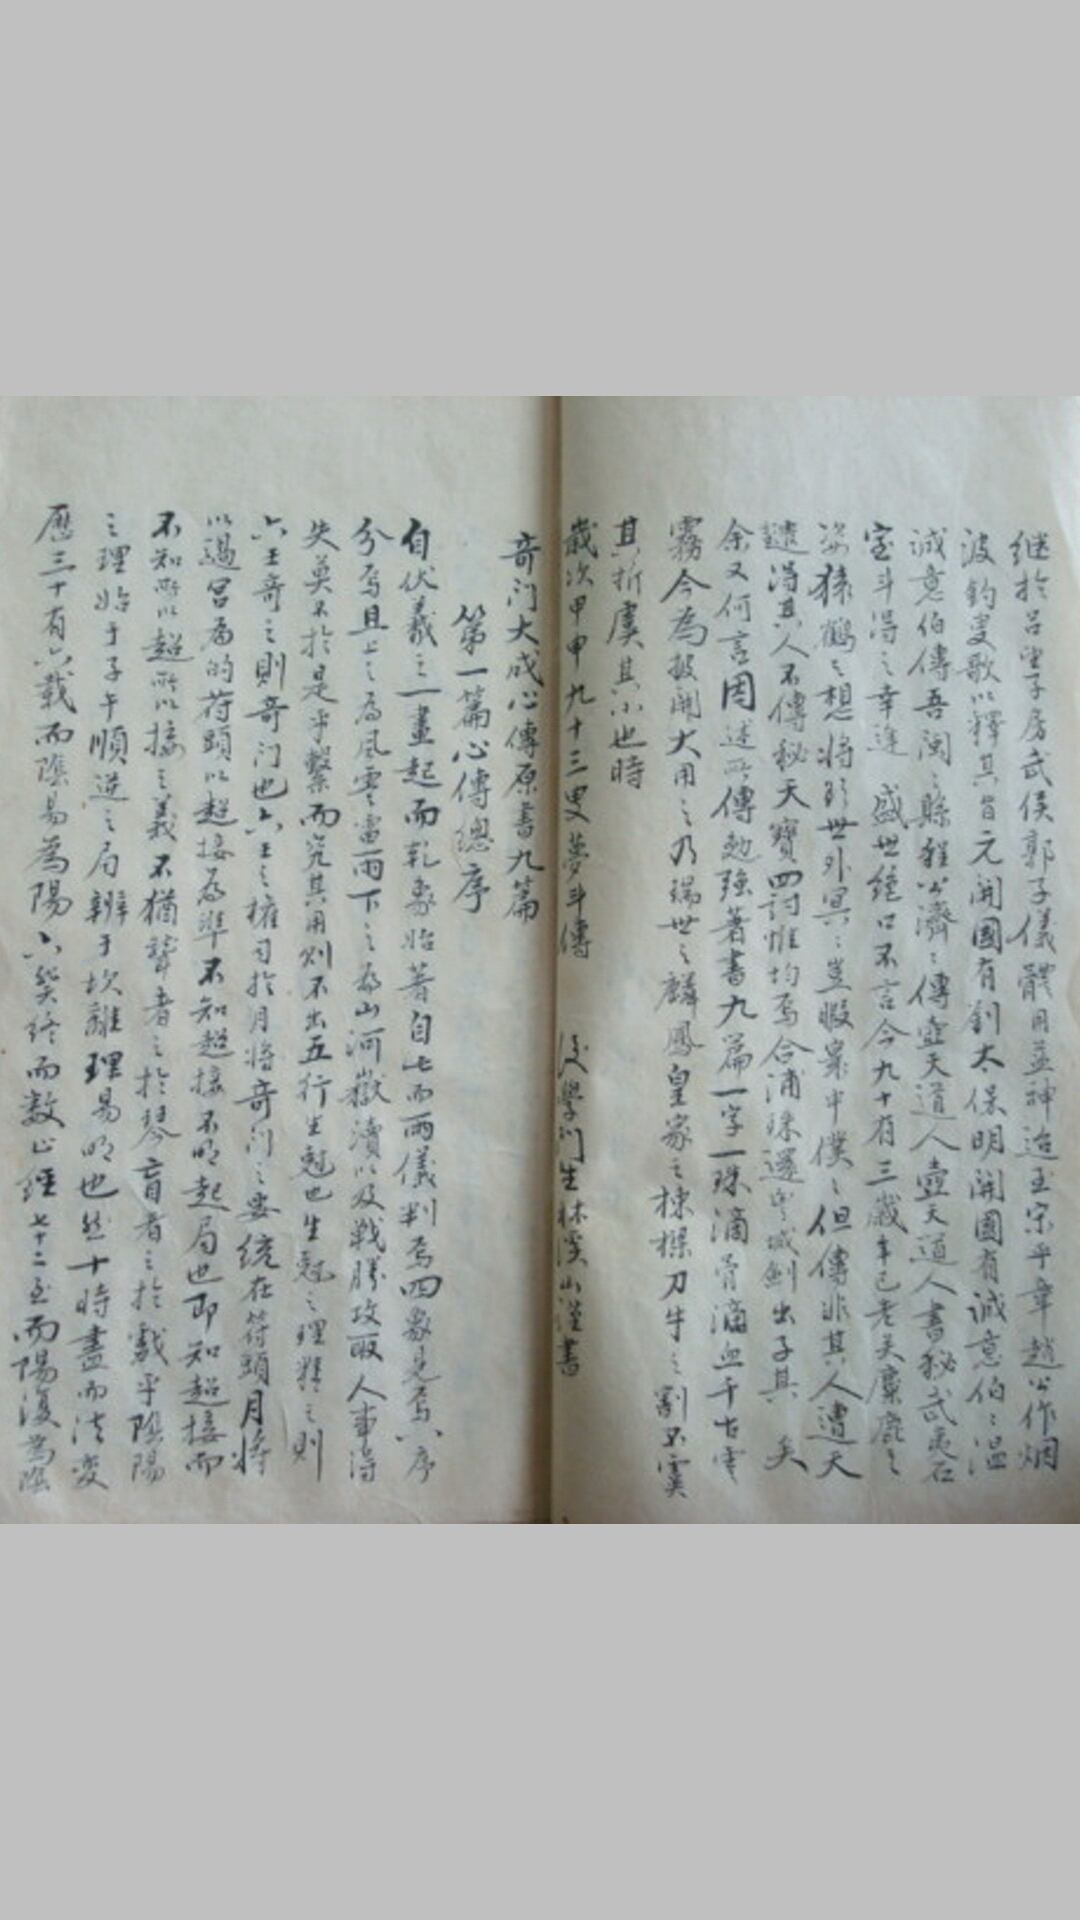 继於呂望子房武侯郭子儀體用並神迨至宋平章趙公作烟
波釣叟歌以釋其旨元開國有劉太保明開國有誠意伯〻溫
誠意伯傳吾閩〻縣程公濟〻傳壺天道人壺天道人書秘武夷石
室斗得之幸逢盛世緘口不言今九十有三歲年已老矣麋鹿之
姿猿鶴之想將別世外冥〻豈暇寰中僕〻但傳非其人遭天
譴得其人不傳秘天寶四罰惟均焉合浦珠還城劍出予其矣
余又何言因述所傳勉強著書九篇一字一珠滴骨滴血千古雲
霧今為披開大用之乃瑞世之麟鳳皇家之棟樑刀牛之割不寞
其折虞其小也時
歲次甲申九十三叟夢斗傳 後學門生林溪山謹書
奇門大成心傳原書九篇
第一篇心傳總序
自伏羲之一畫起而乾象始著自七而兩儀判焉四象見焉八序
分焉且上之為風雲雷雨下之為山河嶽瀆以及戰勝攻取人事得
失莫不於是乎繫而究其用則不出五行生尅也生尅之理釋之則
六壬奇之則奇門也六壬之權司於月將奇門之要統在符頭月將
以過宮為的符頭以超接為準不知超接不明起局也即知超接而
不知所以超所以接之義不猶聾者之於琴盲者之於戲乎陰陽
之理始于子午順逆之局辨于坎離理易明也然十時盡而法变
歷三十有六載而陰易為陽六癸終而数止經七十二至而陽復為陰